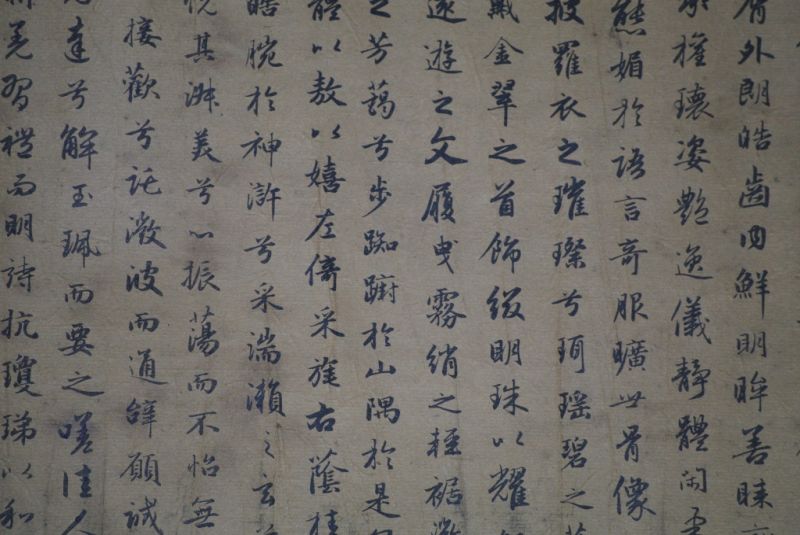 脣外朗皓齒内鮮明眸善睞
權瓌姿艷逸儀靜體閑
態媚於語言奇服曠世骨像
披羅衣之璀璨兮珥瑶碧之華
戴金翠之首飾綴明珠以耀
遠遊之文履曳霧綃之輕裾
之芳藹兮步踟躕於山隅於是
體以敖以嬉左倚采旄右蔭桂
皓腕於神滸兮采湍瀨之玄
悅其淑美兮心振蕩而不怡無
接歡兮託微波而通辭願誠
達兮解玉珮而要之嗟佳人
羌習禮而明詩抗瓊珶以和